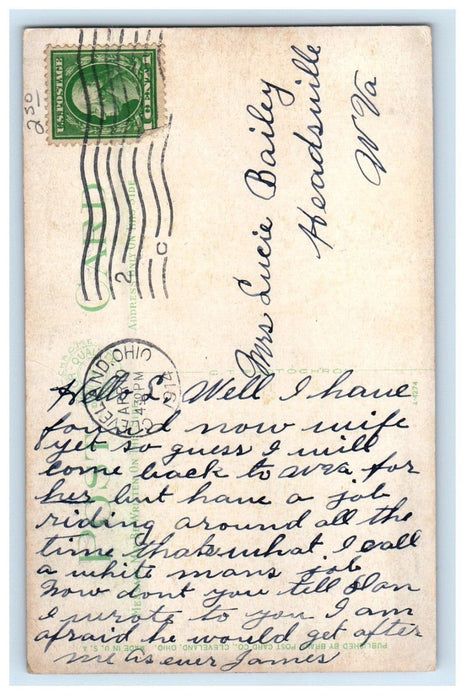 U.S. POSTAGE
1 CENT 1
2 50
2 C
CLEVELAND, OHIO
4 30 PM
1914
POST CARD
ADDRESS ONLY ON THIS SIDE
Mrs Lucie Bailey
Headsville
W Va
Hello L. Well I have
found now wife
yet so guess I will
come back to W Va for
her but have a job
riding around all the
time thats what I call
a white mans job
Now dont you tell Dan
I wrote to you I am
afraid he would get after
me As ever James
PUBLISHED BY BRAUN POST CARD CO., CLEVELAND, OHIO. MADE IN U.S.A.